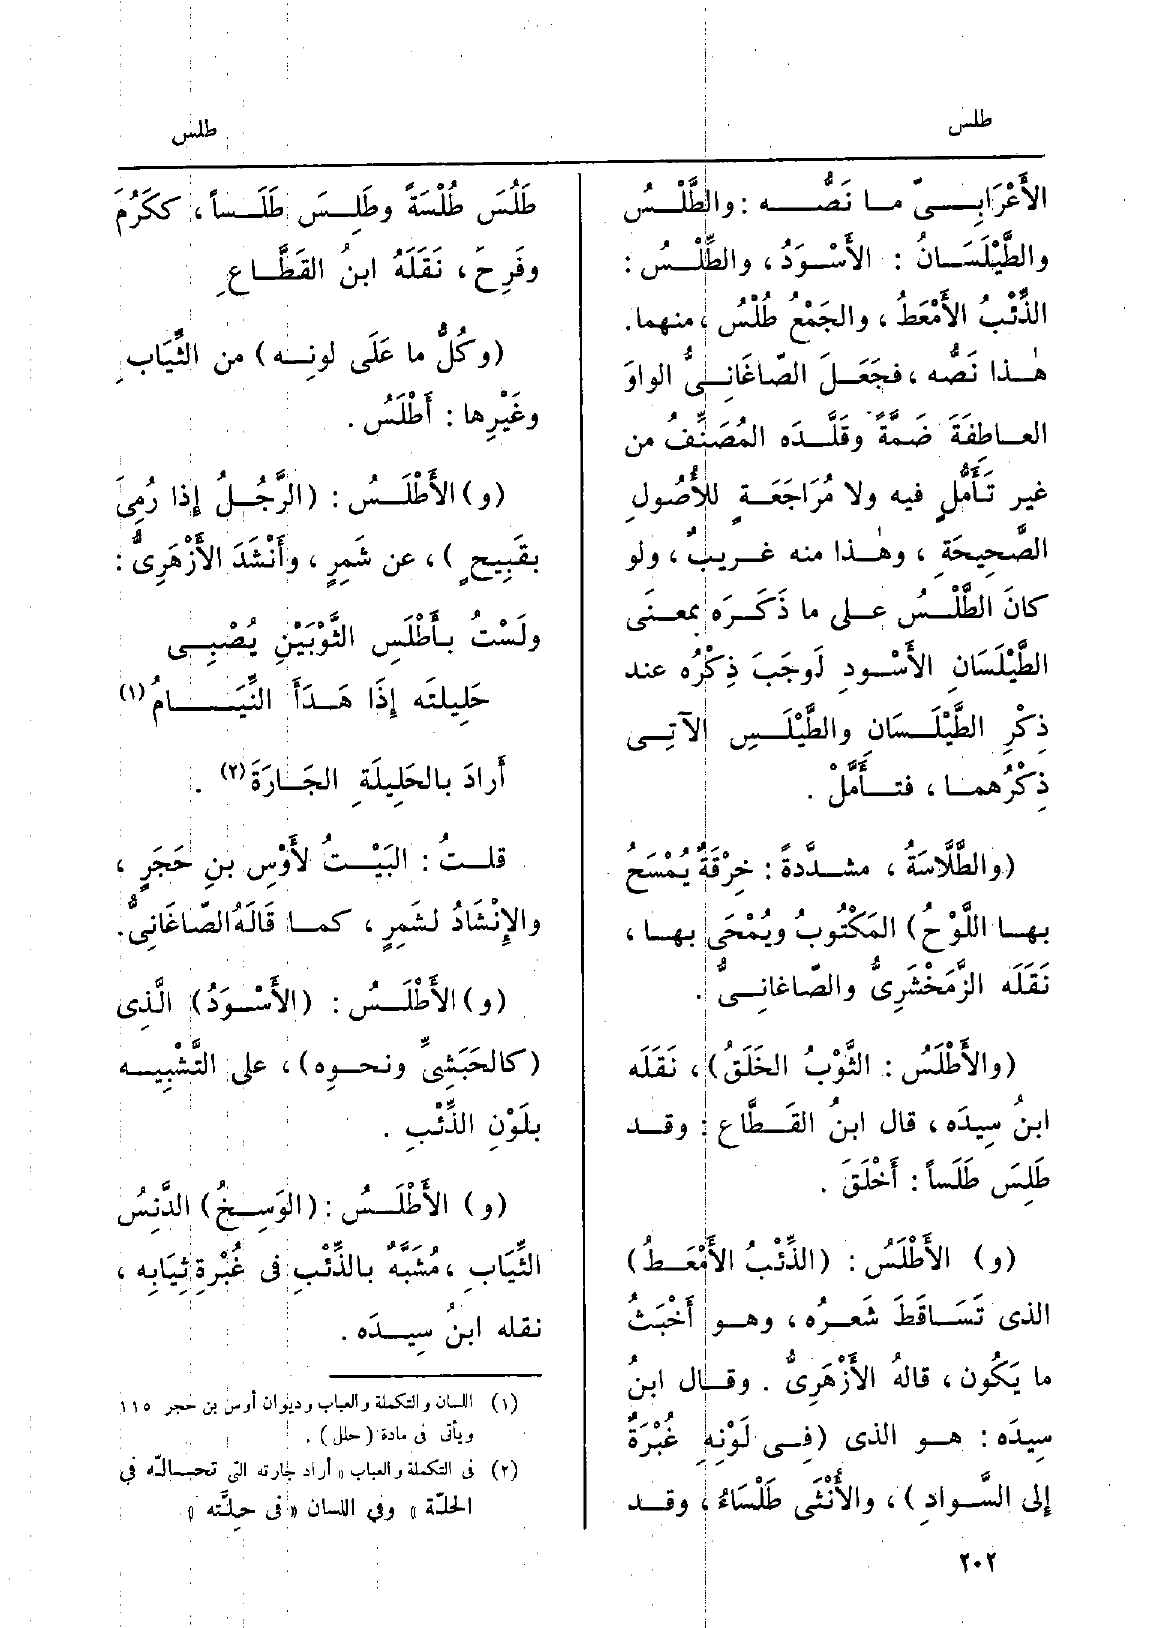 طلس
طلس
الأَعْرَابِــىّ مـا نَصُّـــه : والطَّلْسُ
والطَّيْلَسَـانُ : الأَسْـوَدُ ، والطِّلْـسُ :
الذِّئْبُ الأَمْعَطُ ، والجَمْعُ طُلْسٌ ، منهما.
هٰـذا نَصُّه ، فجَعَـلَ الصّاغَانِـىُّ الواوَ
العـاطِفَةَ ضَمَّةً وقَلَّـدَه المُصَنِّفُ من
غير تَـأَمُّلٍ فيه ولا مُرَاجَعَـةٍ للأُصُولِ
الصَّحِيحَةِ ، وهٰـذا منه غـريبٌ ، ولو
كانَ الطَّلْـسُ على ما ذَكَـرَه بمعنَى
الطَّيْلَسَانِ الأَسْودِ لَوجَبَ ذِكْرُه عند
ذِكْرِ الطَّيْلَـسَانِ والطَّيْلَـسِ الآتِـى
ذِكْرُهمـا ، فتـأَمَّلْ .
(والطَّلَّاسَةُ ، مشـدَّدةً : خِرْقَةٌ يُمْسَحُ
بهـا اللَّوْحُ) المَكْتُوبُ ويُمْحَى بهـا ،
نَقَلَه الزَّمَخْشَرِىُّ والصّاغانِـىُّ .
(والأَطْلَسُ : الثَّوْبُ الخَلَقُ) ، نَقَلَه
ابنُ سِيدَه ، قال ابنُ القَـطَّاع : وقـد
طَلِسَ طَلَساً : أَخْلَقَ .
(و) الأَطْلَسُ : (الذِّئْبُ الأَمْعَـطُ)
الذى تَسَـاقَطَ شَعـرُه ، وهـو أَخْبَثُ
ما يَكُون ، قالهُ الأَزْهَرِىُّ . وقـال ابنُ
سِيدَه : هـو الذى (فِـى لَوْنِهِ غُبْرَةٌ
إلى السَّوادِ ) ، والأُنْثَى طَلْسَاءُ ، وقـد
٢٠٢
طَلُسَ طُلْسَةً وطَلِـسَ طَلَـساً ، ككَرُمَ
وفَرِحَ ، نَقَلَهُ ابنُ القَطَّـاعِ
(وكُلُّ ما عَلَى لونِـه) من الثِّيَابِ
وغَيْرِها : أَطْلَسُ .
(و) الأَطْلَـسُ : (الرَّجُـلُ إِذا رُمِىَ
بقَبِيحٍ ) ، عن شَمِرٍ ، وأَنْشَدَ الأَزْهَرِىُّ :
ولَسْتُ بـأَطْلَسِ الثَّوْبَيْنِ يُصْبِـى
حَلِيلتَه إِذَا هَـدَأَ النِّيَــامُ (١)
أَرادَ بالحَلِيلَةِ الجَـارَةَ (٢) .
قلـتُ : البَيْـتُ لأَوْسِ بنِ حَجَرٍ ،
والإِنْشَادُ لشَمِرٍ ، كمـا قَالَهُ الصّاغَانِىُّ.
(و) الأَطْلَـسُ : (الأَسْـوَدُ) الَّذِى
(كالحَبَشِىِّ ونحـوِه) ، على التَّشْبِيـه
بلَوْنِ الذِّئْبِ .
(و) الأَطْلَـسُ : (الوَسِـخُ) الدَّنِسُ
الثِّيَابِ ، مُشَبَّهٌ بالذِّئْبِ فى غُبْرةِ ثِيَابِه ،
نقله ابنُ سِيـدَه .
(١) اللسان والتكملة والعباب وديوان أوس بن حجر ١١٥
ويأتى فى مادة (حلل) .
(٢) فى التكملة والعباب «أراد جارته التى تحـالّه فى
الحلّة» وفى اللسان «فى حِلّته»